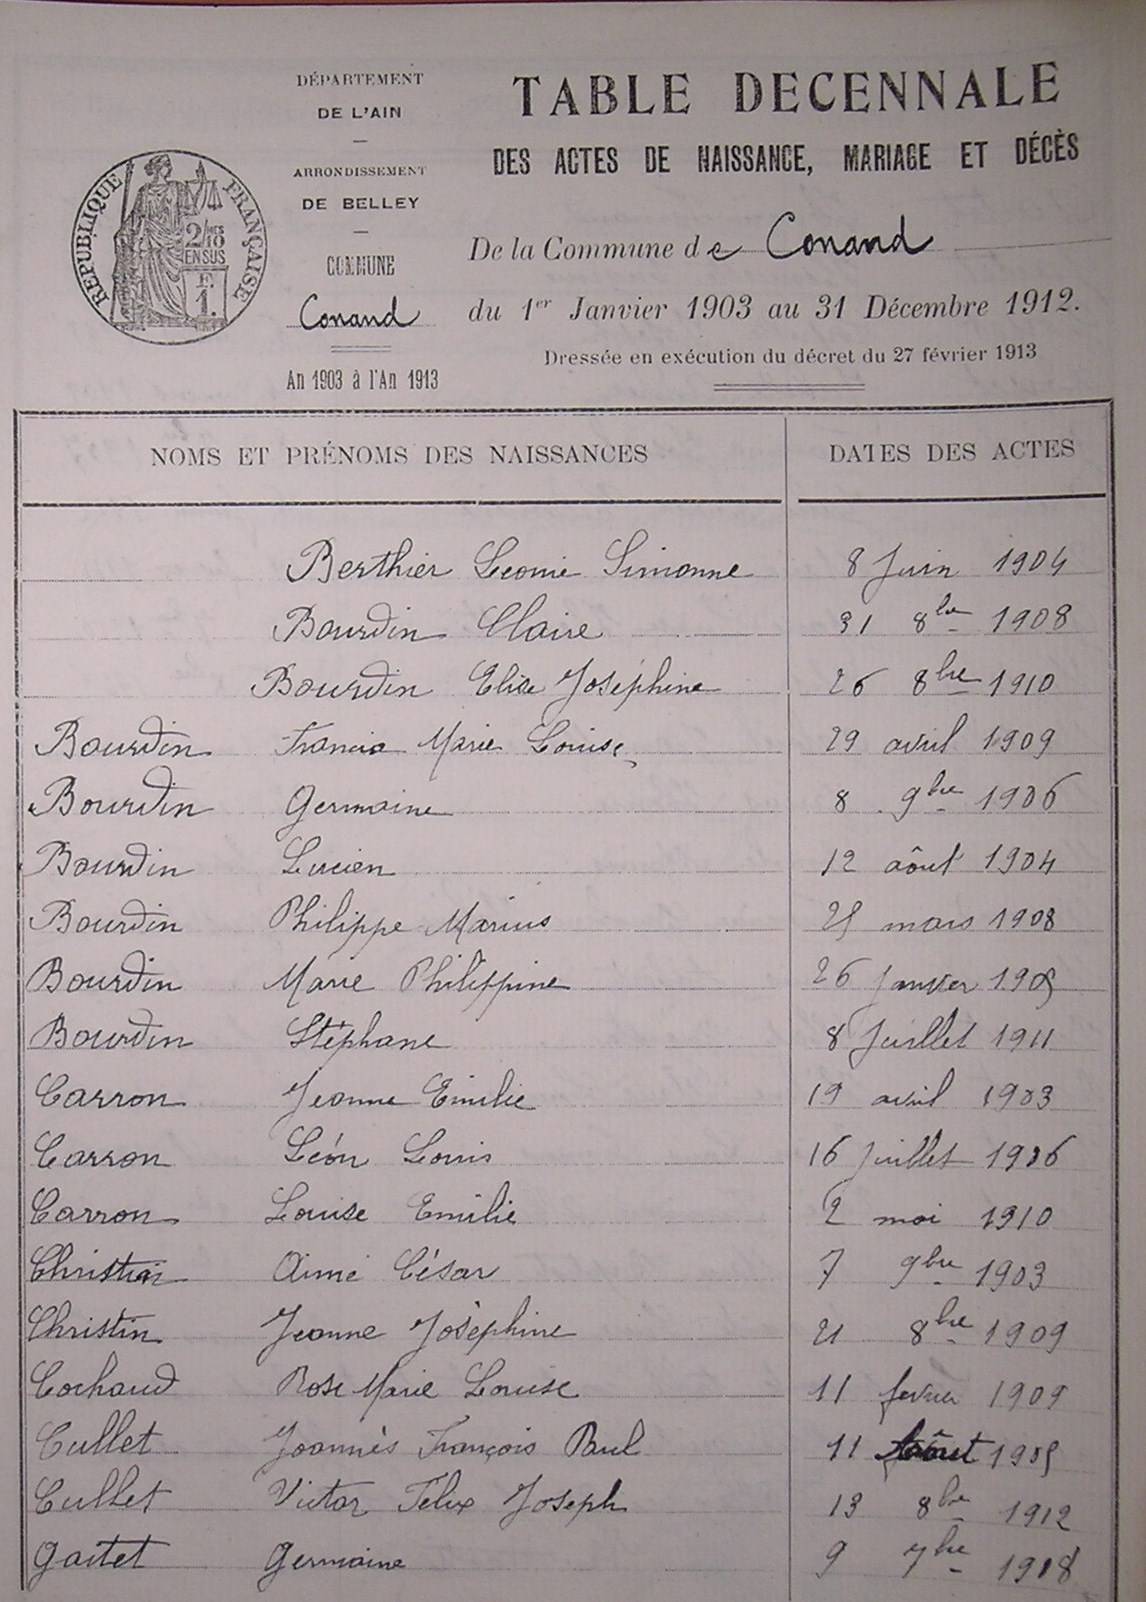 DÉPARTEMENT
DE L'AIN
ARRONDISSEMENT
DE BELLEY
COMMUNE
Conand
An 1903 à l'An 1913
RÉPUBLIQUE FRANÇAISE
2/10 MES
EN SUS
F.
1.
TABLE DECENNALE
DES ACTES DE NAISSANCE, MARIAGE ET DÉCÈS
De la Commune de Conand
du 1er Janvier 1903 au 31 Décembre 1912.
Dressée en exécution du décret du 27 février 1913
NOMS ET PRÉNOMS DES NAISSANCES DATES DES ACTES
Berthier Leonie Simonne 8 Juin 1904
Bourdin Claire 31 8bre 1908
Bourdin Elise Joséphine 26 8bre 1910
Bourdin Francia Marie Louise 29 avril 1909
Bourdin Germaine 8 9bre 1906
Bourdin Lucien 12 aôut 1904
Bourdin Philippe Marius 25 mars 1908
Bourdin Marie Philippine 26 Janvier 1905
Bourdin Stéphane 8 Juillet 1911
Carron Jeanne Emilie 19 avril 1903
Carron Léon Louis 16 Juillet 1906
Carron Louise Emilie 2 mai 1910
Christin Aimé César 7 9bre 1903
Christin Jeanne Josèphine 21 8bre 1909
Cochaud Rose Marie Louise 11 fevrier 1909
Cullet Joannès François Paul 11 Aôut 1905
Cullet Victor Felix Joseph 13 8bre 1912
Gaitet Germaine 9 7bre 1908